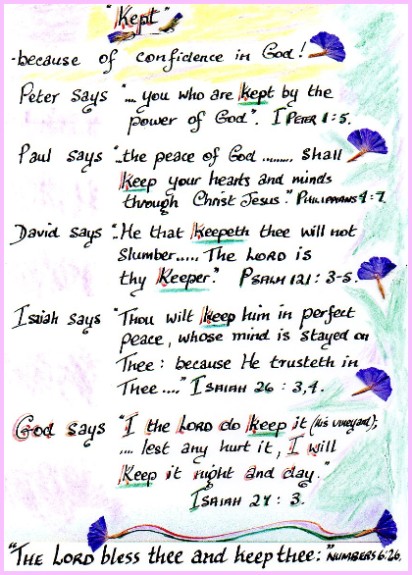 "Kept"
-because of confidence in God!
Peter says "... you who are kept by the
power of God". I PETER 1:5.
Paul says "..the peace of God ........ shall
Keep your hearts and minds
through Christ Jesus." PHILIPPIANS 4:7.
David says "..He that Keepeth thee will not
Slumber..... The LORD is
thy Keeper." PSALM 121: 3-5.
Isaiah says "Thou wilt keep him in perfect
peace, whose mind is stayed on
Thee: because He trusteth in
Thee ...." ISAIAH 26 : 3,4.
God says "I the LORD do keep it (his vineyard);
.... lest any hurt it, I will
Keep it night and day."
ISAIAH 27 : 3.
"THE LORD bless thee and keep thee:" NUMBERS 6:26.